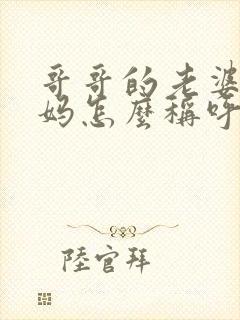 哥哥的老婆
妈怎麽稱呼
陸官拜